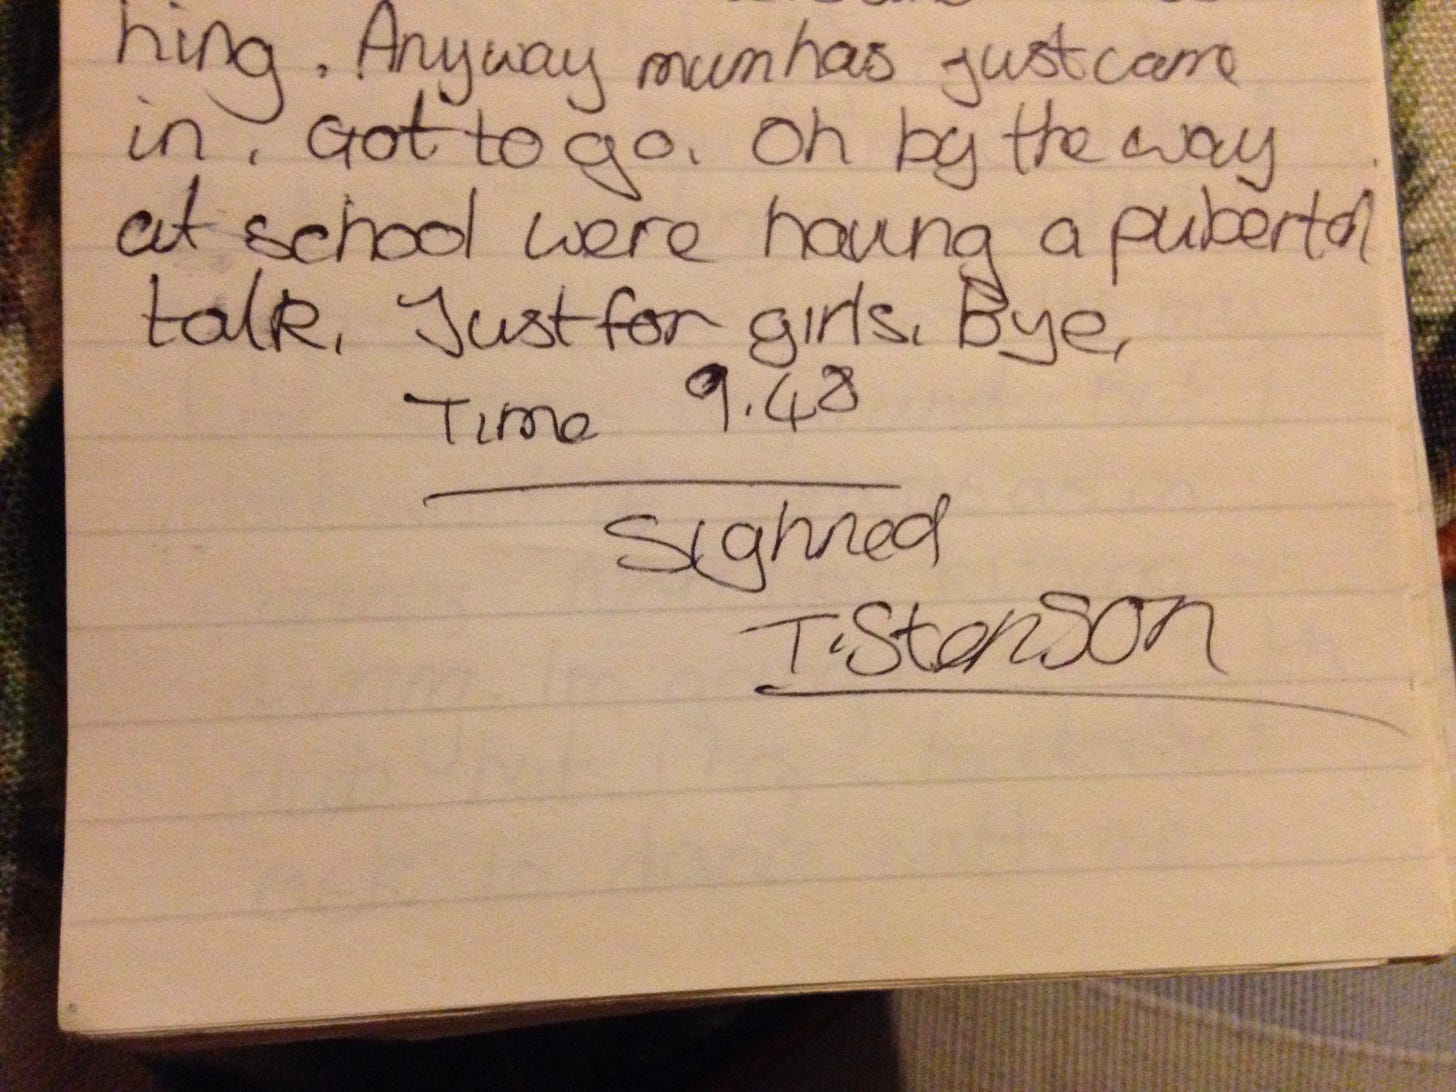 hing. Anyway mum has just came
in. Got to go. Oh by the way
at school were having a pubertal
talk. Just for girls. Bye,
Time 9.48
Sighned
T. Stenson